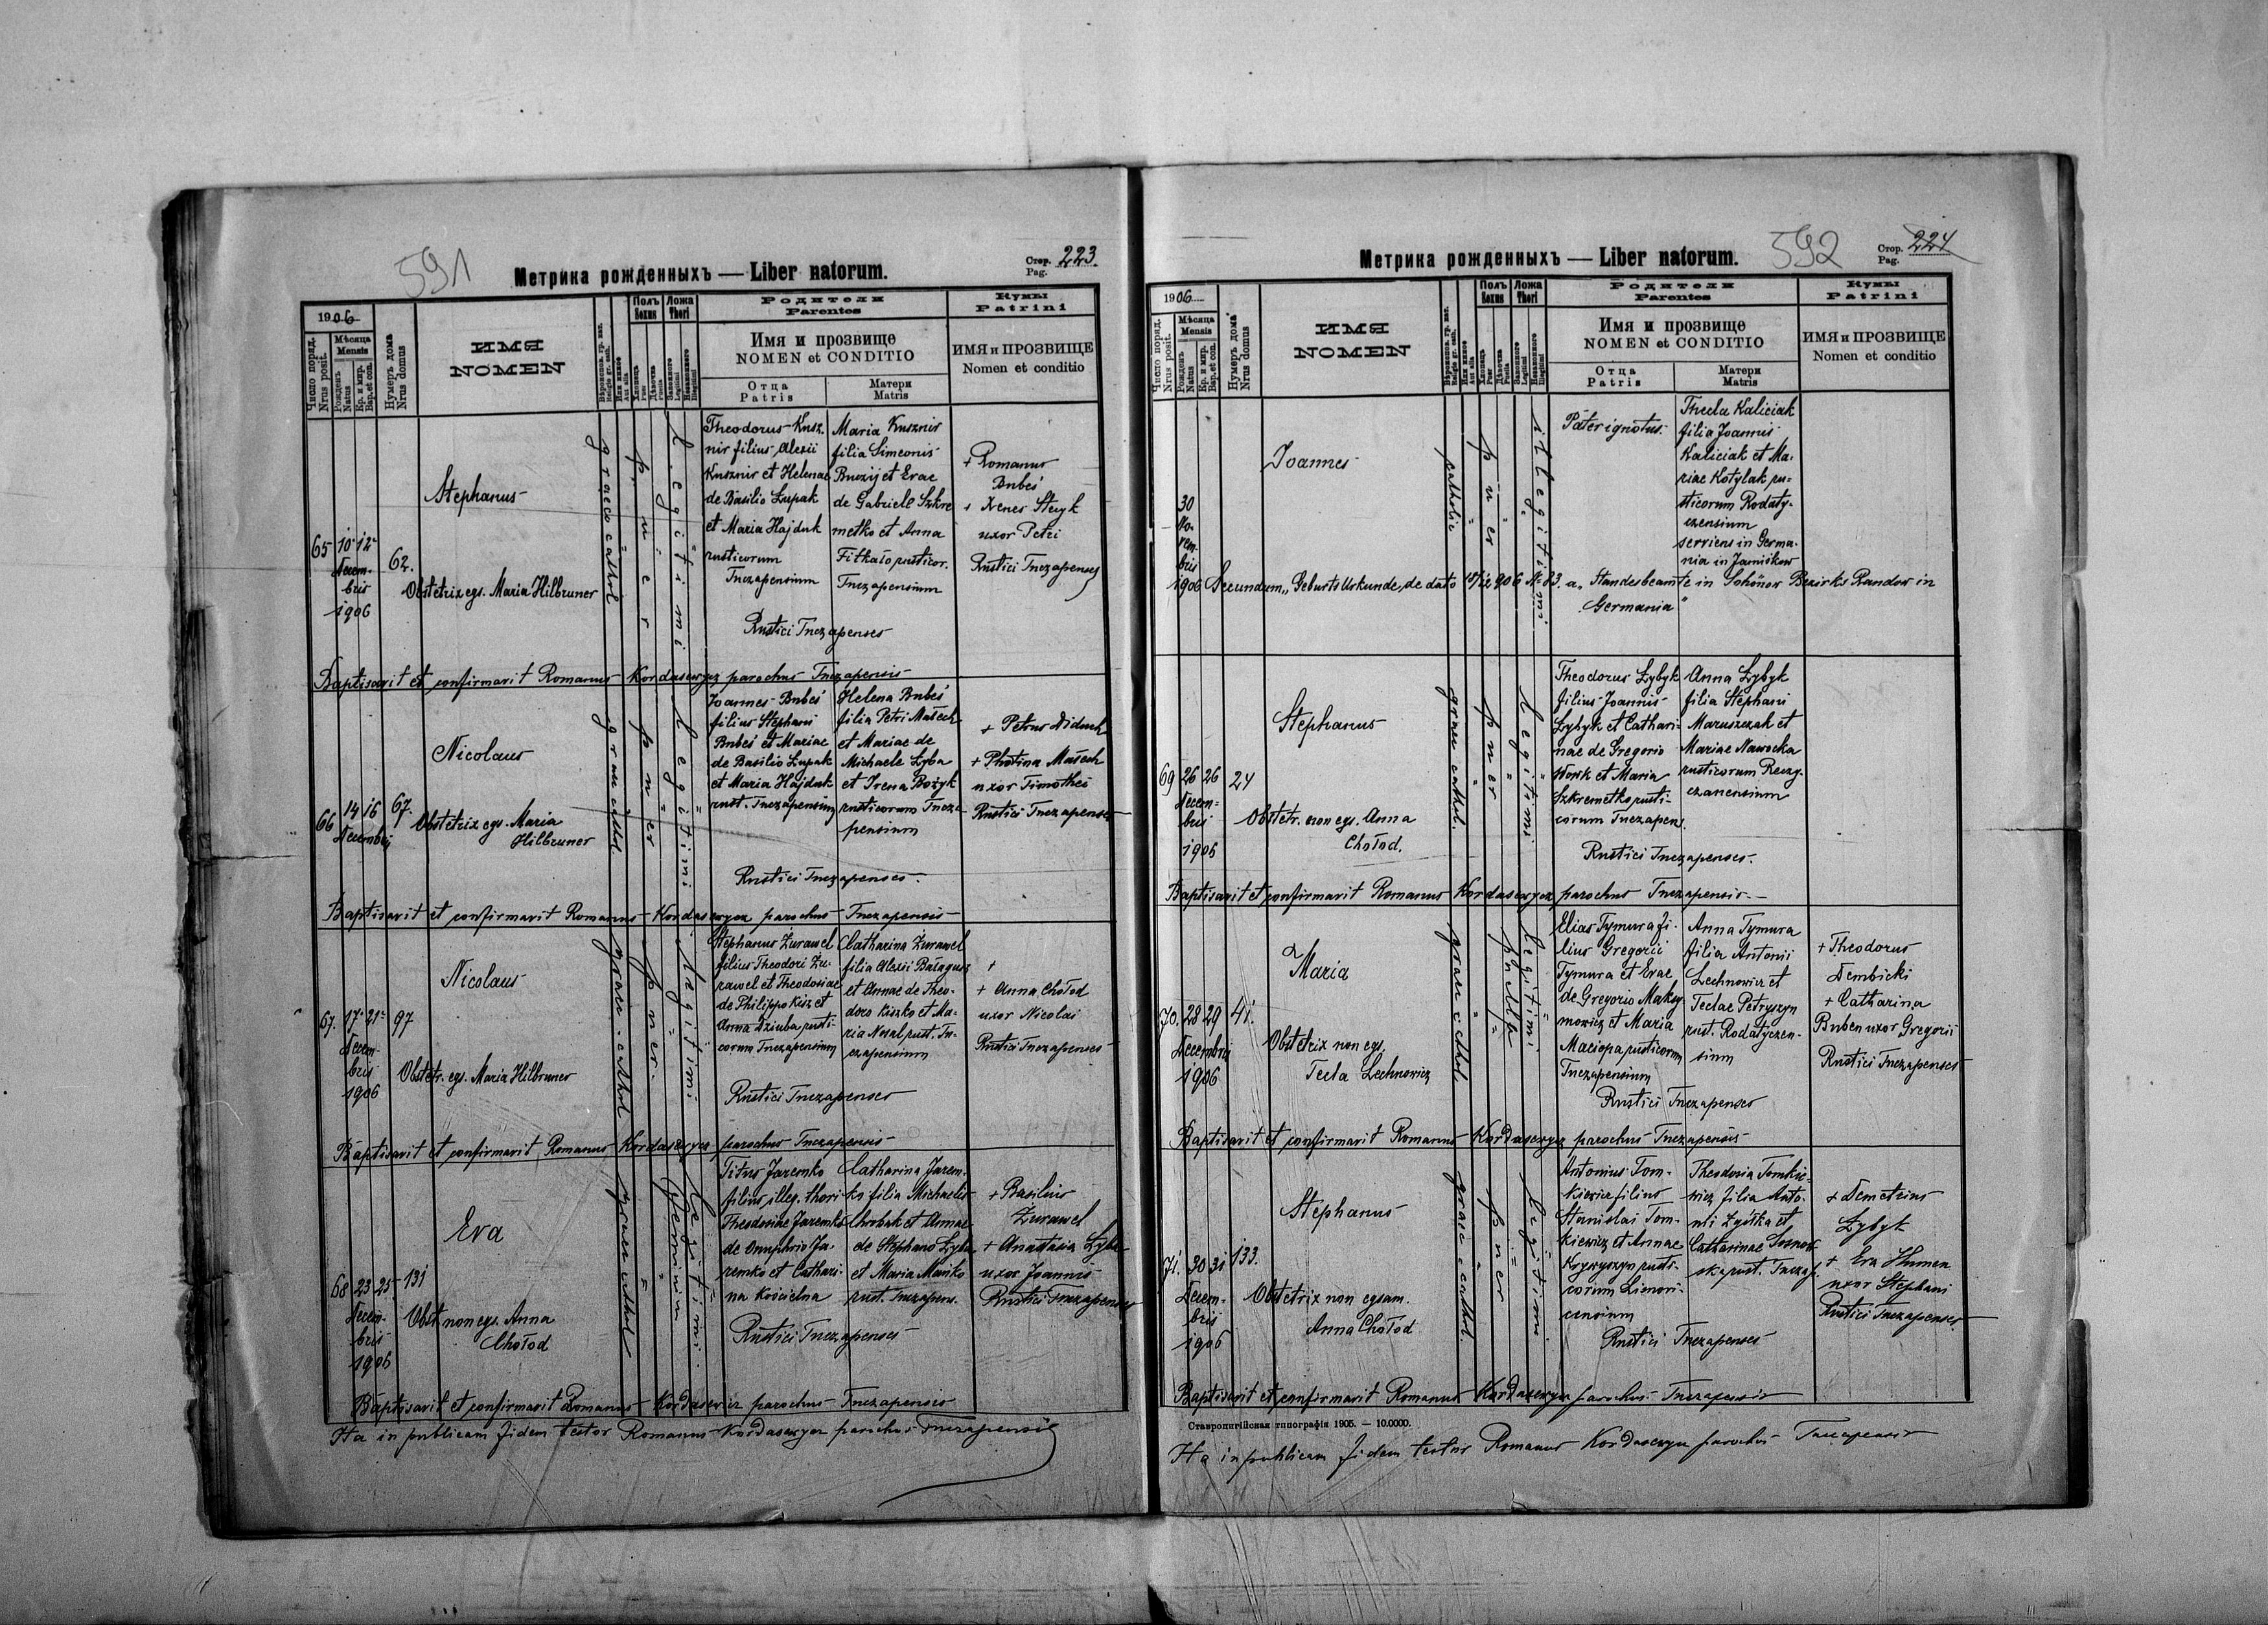 591
Метрика рожденныхъ — Liber natorum.
Стор. 223.
Pag.
1906
Число поряд.
Nrus posit.
Мѣсяца
Mensis
Рожденъ
Natus
Кр. и мир.
Bap. et con.
Нумеръ дома
Nrus domus
ИМЯ
NOMEN
Полъ
Sexus
Ложа
Thori
Родители
Parentes
Имя и прозвище
NOMEN et CONDITIO
Отца
Patris
Матери
Matris
Кумы
Patrini
ИМЯ и ПРОЗВИЩЕ
Nomen et conditio
65
10 12
Decem-
bris
1906
62.
Stephanus
Obstetrix egs. Maria Hilbruner
graeco cathol
puer
Legitimi
Theodorus Kusz-
nir filius Alexii
Kusznir et Helenae
de Basilio Łupak
et Maria Hajduk
rusticorum
Tuczapensium
Maria Kusznir
filia Simeonis
et Evae
de Gabriele Szkre
metko et Anna
rusticor.
Tuczapensium
Rustici Tuczapenses
+ Romanus
Bubeś
+ Xenes
uxor Petri
Rustici Tuczapenses
Baptisavit et confirmavit Romanus Kordasewycz parochus Tuczapensis
66
14 16
Decembris
67.
Nicolaus
Obstetrix egs. Maria
Hilbruner
puer
Legitimi
Joannes Bubeś
filius Stephani
Bubeś et Mariae
de Basilio Łupak
et Maria Hajduk
rust. Tuczapensium
Helena Bubeś
filia Petri Maśech
et Mariae de
Michaele Łyba
et Irena Bożyk
rusticorum Tucza-
pensium
Rustici Tuczapenses.
+ Petrus Diduch
+ Photina Maśech
uxor Timothei
Rustici Tuczapenses
Baptisavit et confirmavit Romanus Kordasewycz parochus Tuczapensis
67.
17 21
Decem-
bris
1906
97
Nicolaus
Obstetr. egs. Maria Hilbruner
puer
Legitimi
Stephanus Żurawel
filius Theodori Żu-
rawel et Theodosiae
de Philippo Kisz et
Anna Dziuba rusti-
corum Tuczapensium
Catharina Żurawel
filia Alexii Bałagusz
et Annae de Theo-
doro Kiszko et Ma-
ria rust. Tu-
czapensium
Rustici Tuczapenses
+
+ Anna Chołod
uxor Nicolai
Rustici Tuczapenses
Baptisavit et confirmavit Romanus Kordasewycz parochus Tuczapensis
68
23 25
Decem-
bris
1906
131
Eva
Obst. non egs. Anna
Chołod
Legitimi
Titus Jaremko
filius illeg. thori
Theodosiae Jaremko
de Onuphrio Ja-
remko et Cathari-
na Kościelna
Catharina Jarem-
ko filia Michaelis
et Annae
de Stephano Łyba
et Maria
rust. Tuczapens.
Rustici Tuczapenses
+ Basilius
Żurawel
+ Anastasia Łyba
uxor Joannis
Rustici Tuczapenses
Baptisavit et confirmavit Romanus Kordasewicz parochus Tuczapensis
Ita in publicam fidem testor Romanus Kordasewycz parochus Tuczapensis
592
Метрика рожденныхъ — Liber natorum.
Стор. 224
Pag.
1906
Число поряд.
Nrus posit.
Мѣсяца
Mensis
Рожденъ
Natus
Кр. и мир.
Bap. et con.
Нумеръ дома
Nrus domus
ИМЯ
NOMEN
Полъ
Sexus
Ложа
Thori
Родители
Parentes
Имя и прозвище
NOMEN et CONDITIO
Отца
Patris
Матери
Matris
Кумы
Patrini
ИМЯ и ПРОЗВИЩЕ
Nomen et conditio
30
No-
vem-
bris
1906
Joannes
catholic
puer
illegitimi
Pater ignotus.
Thecla Kaliciak
filia Joannis
Kaliciak et Ma-
riae Kotylak ru-
sticorum Rodaty-
czensium
serviens in Germa-
nia in Jamikow
Secundum „Geburts Urkunde, de dato 906 № 83. a „Standesbeamte in Schönow Bezirks Randow in
Germania"
69
26 26
Decem-
bris
1906
24
Stephanus
Obstetr. non egs. Anna
Chołod.
graeci cathol.
puer
Legitimi
Theodorus Łybyk
filius Joannis
Łybyk et Cathari-
nae de Gregorio
Wowk et Maria
Szkremetko rusti-
corum Tuczapens.
Anna Łybyk
filia Stephani
Maruszczak et
Mariae Nawocka
rusticorum Reczy-
czanensium
Rustici Tuczapenses.
Baptisavit et confirmavit Romanus Kordasewycz parochus Tuczapensis.
70.
28 29
Decembris
1906
41.
Maria
Obstetrix non egs.
Tecla Lechnowicz
puella
Legitimi
Elias Tymura fi-
lius Gregorii
Tymura et Evae
de Gregorio Maksy-
mowicz et Maria
Maciopa rusticorum
Tuczapensium
Anna Tymura
filia Antonii
Lechnowicz et
Teclae Petryszyn
rust. Rodatyczen-
sium
Rustici Tuczapenses
+ Theodorus
Dembicki
+ Catharina
Buben uxor Gregorii
Rustici Tuczapenses
Baptisavit et confirmavit Romanus Kordasewycz parochus Tuczapensis
71.
30 31
Decem-
bris
1906
133.
Stephanus
Obstetrix non egsam.
Anna Chołod
graeci cathol.
puer
Legitimi
Antonius Tom-
kiewicz filius
Stanislai Tom-
kiewicz et Annae
Krywyszyn rusti-
corum
censium
Theodosia Tomkie-
wicz filia Anto-
nii et
Catharinae Sosnow-
ska rust. Tuczap.
Rustici Tuczapenses
+ Demetrius
Łybyk
+ Eva Humen
uxor Stephani
Rustici Tuczapenses
Baptisavit et confirmavit Romanus Kordasewycz parochus Tuczapensis
Ставропигійская типографія 1905. — 10.0000.
Ita in publicam fidem testor Romanus Kordasewycz parochus Tuczapensis